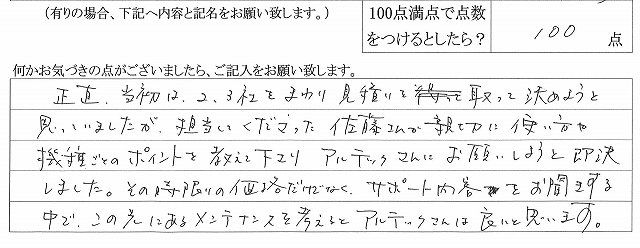 (有りの場合、下記へ内容と記名をお願い致します。)
100点満点で点数
をつけるとしたら?
100 点
何かお気づきの点がございましたら、ご記入をお願い致します。
正直、当初は、2、3社をまわり見積いを取って決めようと
思っていましたが、担当してくださった佐藤さんが親切に使い方や
機種ごとのポイントを教えて下さりアルテックさんにお願いしようと即決
しました。その時限りの価格だけでなく、サポート内容をお聞きする
中で、この先にあるメンテナンスを考えるとアルテックさんは良いと思います。